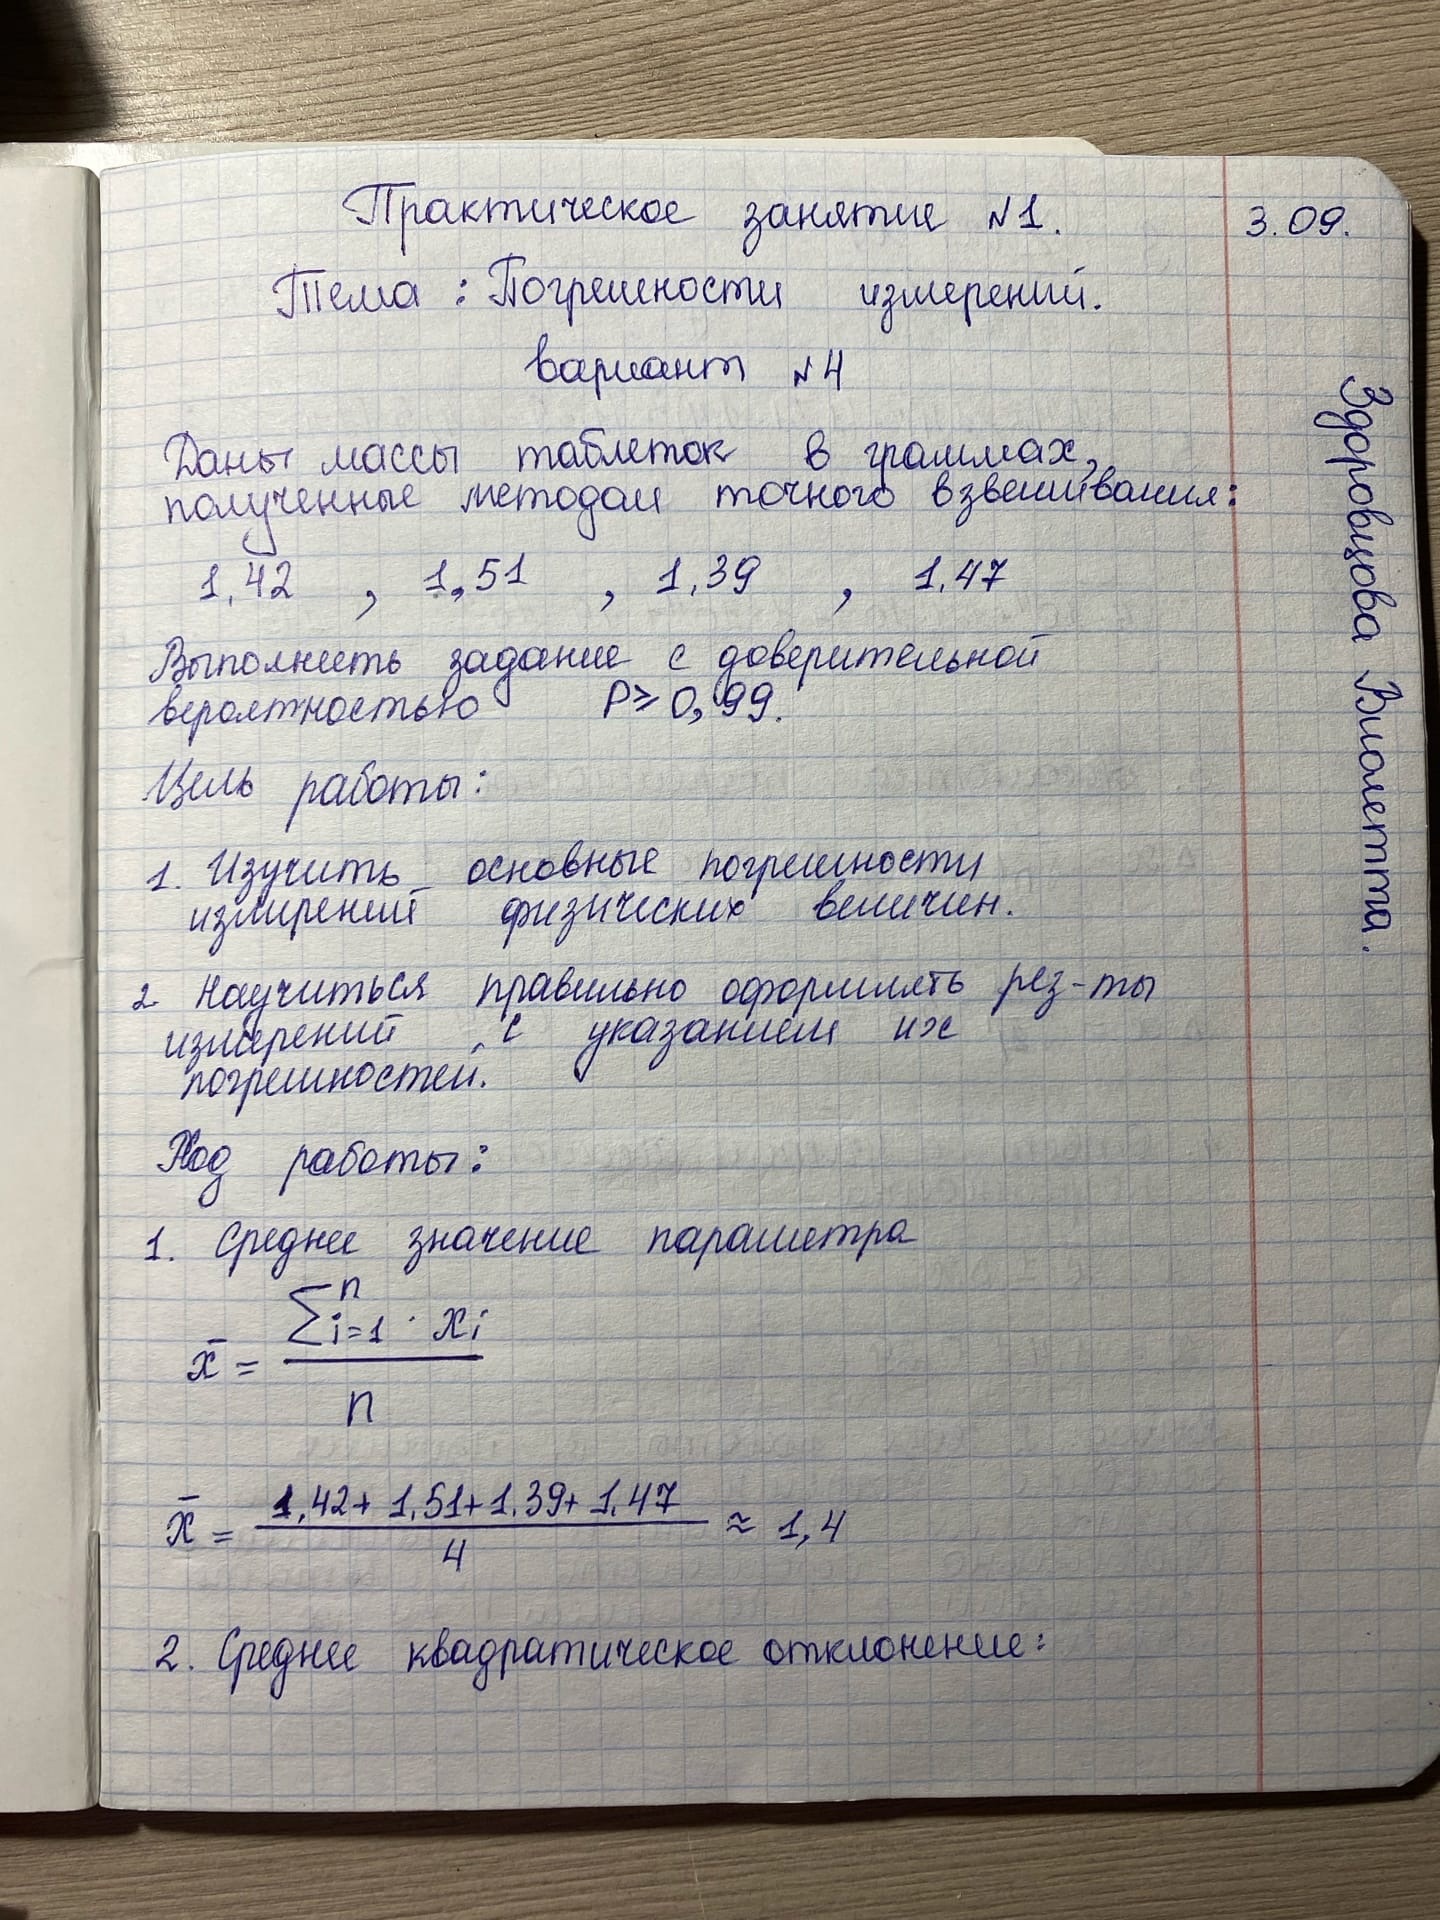 Практическое занятие №1.
3.09.
Тема: Погрешности измерений.
вариант №4
Здоровцова Виолетта.
Даны массы таблеток в граммах,
полученные методом точного взвешивания:
1,42 , 1,51 , 1,39 , 1,47
Выполнить задание с доверительной
вероятностью P≥0,99.
Цель работы:
1. Изучить основные погрешности
измерений физических величин.
2 Научиться правильно оформлять рез-ты
измерений с указанием их
погрешностей.
Ход работы:
1. Среднее значение параметра
x̄ = ∑ⁿi=1 · xi / n
x̄ = 1,42+1,51+1,39+1,47 / 4 ≈ 1,4
2. Среднее квадратическое отклонение: